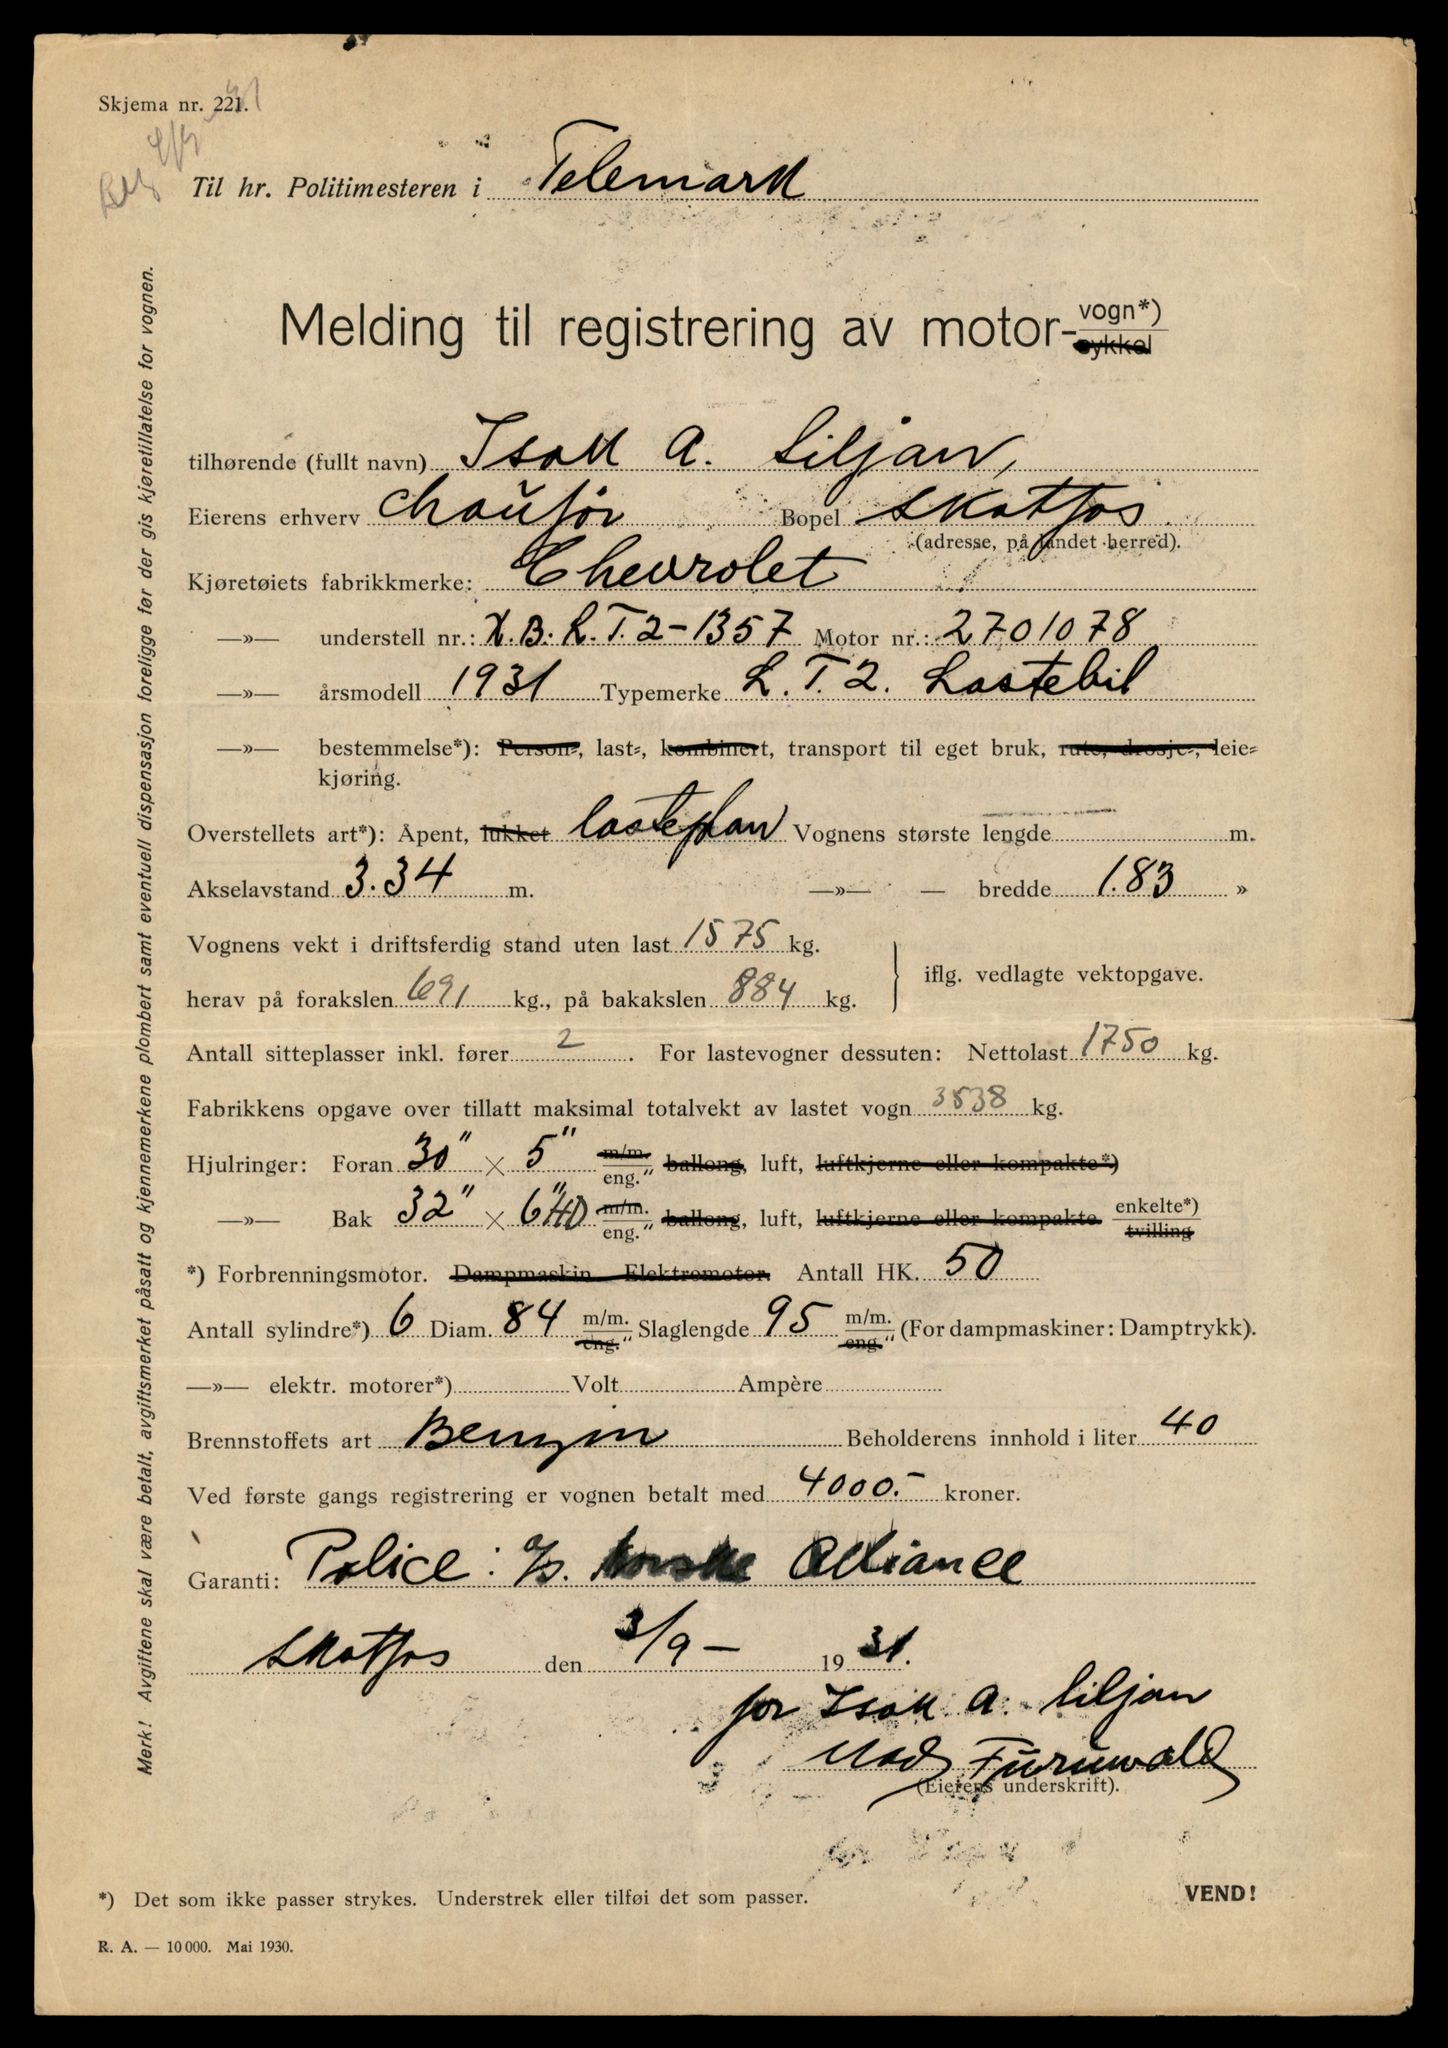 Skjema nr. 221.
Til hr. Politimesteren i Telemark
Melding til registrering av motor-vogn*)
sykkel
tilhørende (fullt navn) Isak A. Siljan,
Eierens erhverv chaufør Bopel Skotfos
(adresse, på landet herred).
Kjøretøiets fabrikkmerke: Chevrolet
—»— understell nr.: X.B.L.T.2-1357 Motor nr.: 2701078
—»— årsmodell 1931 Typemerke L.T.2. Lastebil
—»— bestemmelse*): Person-, last-, kombinert, transport til eget bruk, rute, drosje-, leie-
kjøring.
Overstellets art*): Åpent, lukket lasteplan Vognens største lengde — m.
Akselavstand 3.34 m. —»— — bredde 1.83 »
Vognens vekt i driftsferdig stand uten last 1575 kg.
iflg. vedlagte vektopgave.
herav på forakslen 691 kg., på bakakslen 884 kg.
Antall sitteplasser inkl. fører 2. For lastevogner dessuten: Nettolast 1750 kg.
Fabrikkens opgave over tillatt maksimal totalvekt av lastet vogn 3538 kg.
Hjulringer: Foran 30" × 5" m/m. eng." ballong, luft, luftkjerne eller kompakte*)
—»— Bak 32" × 6" m/m. eng." ballong, luft, luftkjerne eller kompakte enkelte*) tvilling
*) Forbrenningsmotor. Dampmaskin Elektromotor. Antall HK. 50
Antall sylindre*) 6 Diam. 84 m/m. eng." Slaglengde 95 m/m. eng." (For dampmaskiner: Damptrykk).
—»— elektr. motorer*) Volt Ampère
Brennstoffets art Benzin Beholderens innhold i liter 40
Ved første gangs registrering er vognen betalt med 4000.- kroner.
Garanti: Police: A/S. Norske Alliance
Skotfos den 3/9- 1931.
for Isak A. Siljan
Furuwald
(Eierens underskrift).
*) Det som ikke passer strykes. Understrek eller tilføi det som passer.
VEND!
R. A. — 10 000. Mai 1930.
Merk! Avgiftene skal være betalt, avgiftsmerket påsatt og kjennemerkene plombert samt eventuell dispensasjon foreligge før der gis kjøretillatelse for vognen.